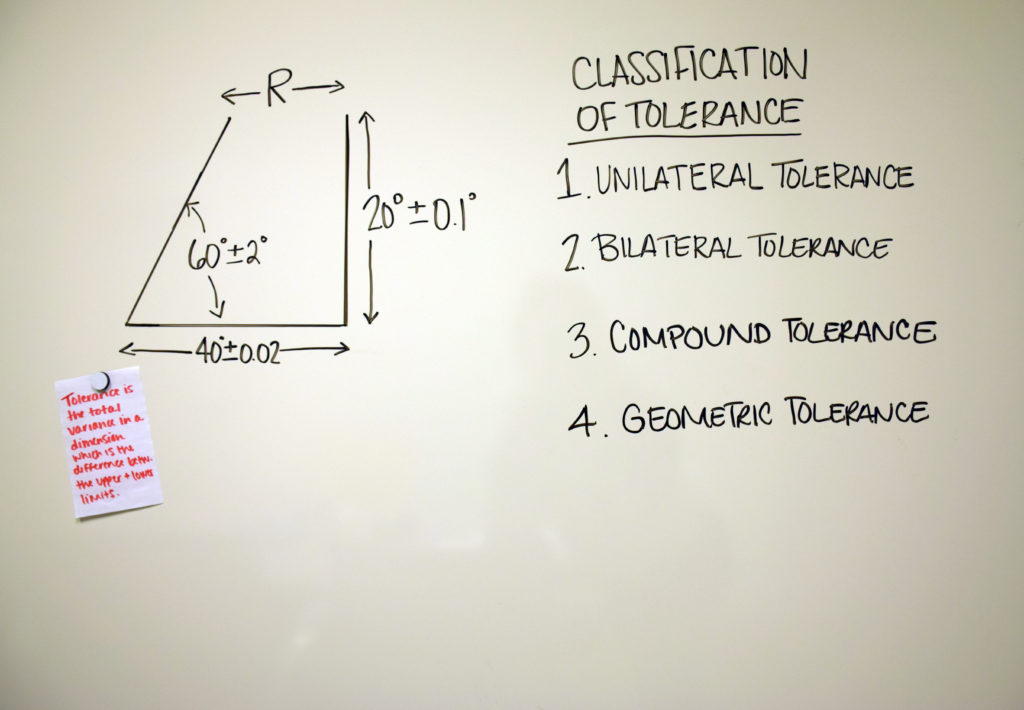 R
20°±0.1°
60°±2°
40°±0.02
Tolerance is
the total
variance in a
dimension
which is the
difference betw.
the upper + lower
limits.
CLASSIFICATION
OF TOLERANCE
1. UNILATERAL TOLERANCE
2. BILATERAL TOLERANCE
3. COMPOUND TOLERANCE
4. GEOMETRIC TOLERANCE